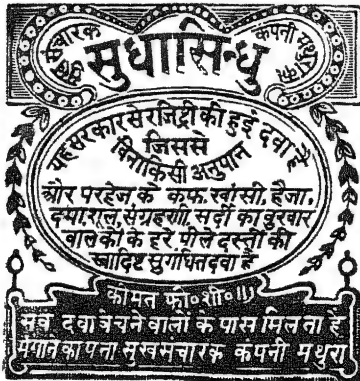 सुखसंचारक कंपनी मथुरा का
सुधासिन्धु
यह सरकार से रजिष्ट्री की हुई दवा है
जिससे
विना किसी अनुपान
और परहेज के कफ, खांसी, हैजा,
दमा, शूल, संग्रहणी, सर्दी का बुखार
बालकों के हरे पीले दस्तों की
स्वादिष्ट सुगंधित दवा है
कीमत फी॰ शी॰ ॥)
सब दवा बेचने वालों के पास मिलता है
मंगाने का पता सुखसंचारक कंपनी मथुरा